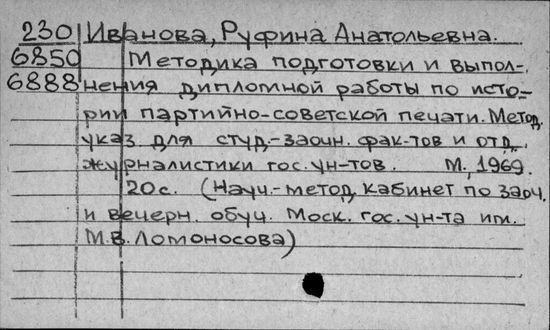 230 Иванова, Руфина Анатольевна.
6850 Методика подготовки и выпол-
6888 нения дипломной работы по исто-
рии партийно-советской печати. Метод.
указ. для студ.-заочн. фак-тов и отд.
журналистики гос. ун-тов. М., 1969.
20с. (Науч.-метод. кабинет по заоч.
и вечерн. обуч. Моск. гос. ун-та им.
М.В. Ломоносова)